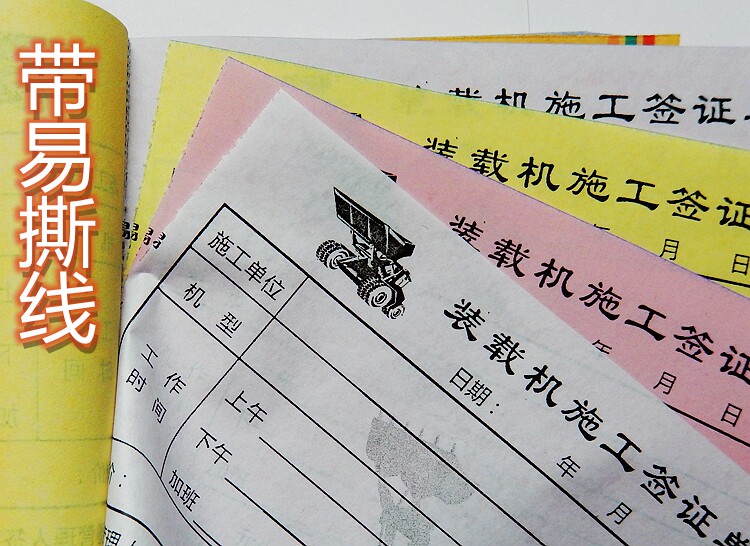 带易撕线
装载机施工签证单
装载机施工签证
年 月 日
装载机施工签证
年 月 日
装载机施工签证单
日期： 年 月
施工单位
机型
工作时间
上午
下午
加班
价：